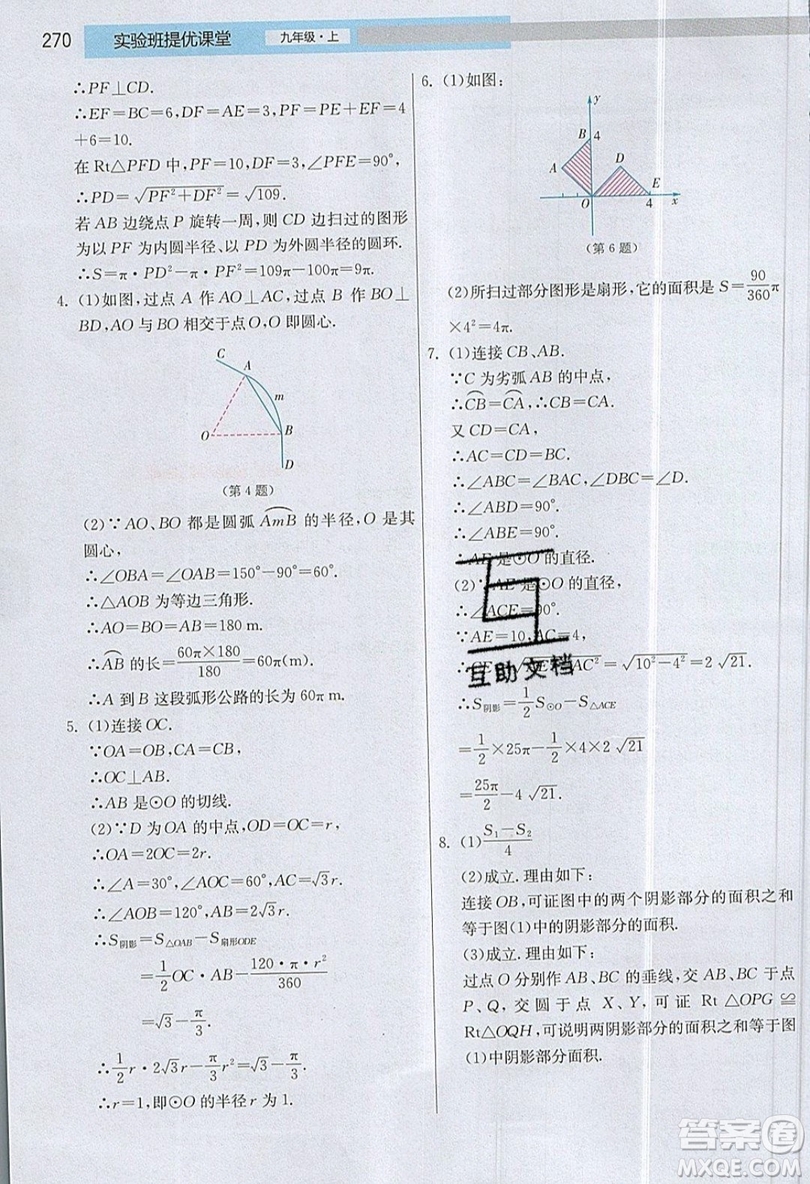 270 实验班提优课堂 九年级·上
∴PF⊥CD.
∴EF=BC=6,DF=AE=3,PF=PE+EF=4
+6=10.
在 Rt△PFD 中,PF=10,DF=3,∠PFE=90°,
∴PD=√(PF²+DF²)=√109.
若 AB 边绕点 P 旋转一周,则 CD 边扫过的图形
为以 PF 为内圆半径、以 PD 为外圆半径的圆环.
∴S=π·PD²-π·PF²=109π-100π=9π.
4. (1)如图,过点 A 作 AO⊥AC,过点 B 作 BO⊥
BD,AO 与 BO 相交于点O,O 即圆心.
C
A
m
O
B
D
(第 4 题)
(2)∵AO、BO 都是圆弧 AmB 的半径,O 是其
圆心,
∴∠OBA=∠OAB=150°-90°=60°.
∴△AOB 为等边三角形.
∴AO=BO=AB=180 m.
∴AB 的长=60π×180/180=60π(m).
∴A 到 B 这段弧形公路的长为 60π m.
5. (1)连接 OC.
∵OA=OB,CA=CB,
∴OC⊥AB.
∴AB 是⊙O 的切线.
(2)∵D 为 OA 的中点,OD=OC=r,
∴OA=2OC=2r.
∴∠A=30°,∠AOC=60°,AC=√3r.
∴∠AOB=120°,AB=2√3r.
∴S阴影=S△OAB-S扇形ODE
=1/2 OC·AB-120·π·r²/360
=√3-π/3.
∴1/2 r·2√3r-π/3 r²=√3-π/3.
∴r=1,即⊙O 的半径 r 为 1.
6. (1)如图:
y
B 4
A
D
E
O
4
x
(第 6 题)
(2)所扫过部分图形是扇形,它的面积是 S=90/360 π
×4²=4π.
7. (1)连接 CB、AB.
∵C 为劣弧 AB 的中点,
∴CB=CA,∴CB=CA.
又 CD=CA,
∴AC=CD=BC.
∴∠ABC=∠BAC,∠DBC=∠D.
∴∠ABD=90°.
∴∠ABE=90°.
∴AE 是⊙O 的直径.
(2)∵AE 是⊙O 的直径,
∴∠ACE=90°.
∵AE=10,AC=4,
∴CE=√(AE²-AC²)=√(10²-4²)=2√21.
∴S阴影=1/2 S⊙O-S△ACE
=1/2×25π-1/2×4×2√21
=25π/2-4√21.
8. (1)(S₁-S₂)/4
(2)成立.理由如下:
连接 OB,可证图中的两个阴影部分的面积之和
等于图(1)中的阴影部分的面积.
(3)成立.理由如下:
过点 O 分别作 AB、BC 的垂线,交 AB、BC 于点
P、Q,交圆于点 X、Y,可证 Rt △OPG ≌
Rt△OQH,可说明两阴影部分的面积之和等于图
(1)中阴影部分面积.
互助文档
答案圈
MXQE.COM